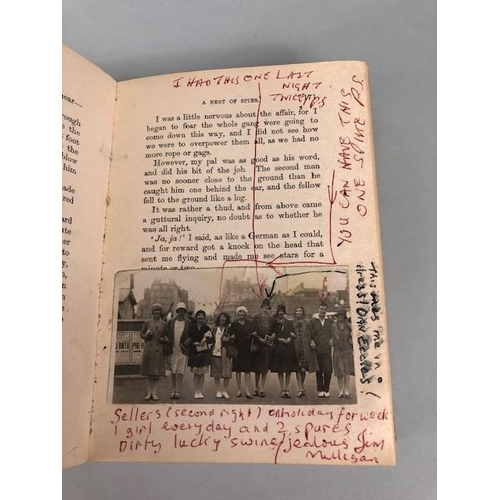 I HAD THIS ONE LAST
NIGHT
TWICE
A NEST OF SPIES.
I was a little nervous about the affair, for I
began to fear the whole gang were going to
come down this way, and I did not see how
we were to overpower them all, as we had no
more rope or gags.
However, my pal was as good as his word,
and did his bit of the job. The second man
was no sooner close to the ground than he
caught him one behind the ear, and the fellow
fell to the ground like a log.
It was rather a thud, and from above came
a guttural inquiry, no doubt as to whether he
was all right.
'Ja, ja!' I said, as like a German as I could,
and for reward got a knock on the head that
sent me flying and made me see stars for a
minute or two.
YOU CAN HAVE THIS
ONE SPIKE P.S.
This ones me in
dress! DAN ECCLES!
Sellers (second right) on holiday for week
1 girl everyday and 2 spares
Dirty lucky swine jealous Jim
Mulligan
ear—
rough
foot
blow